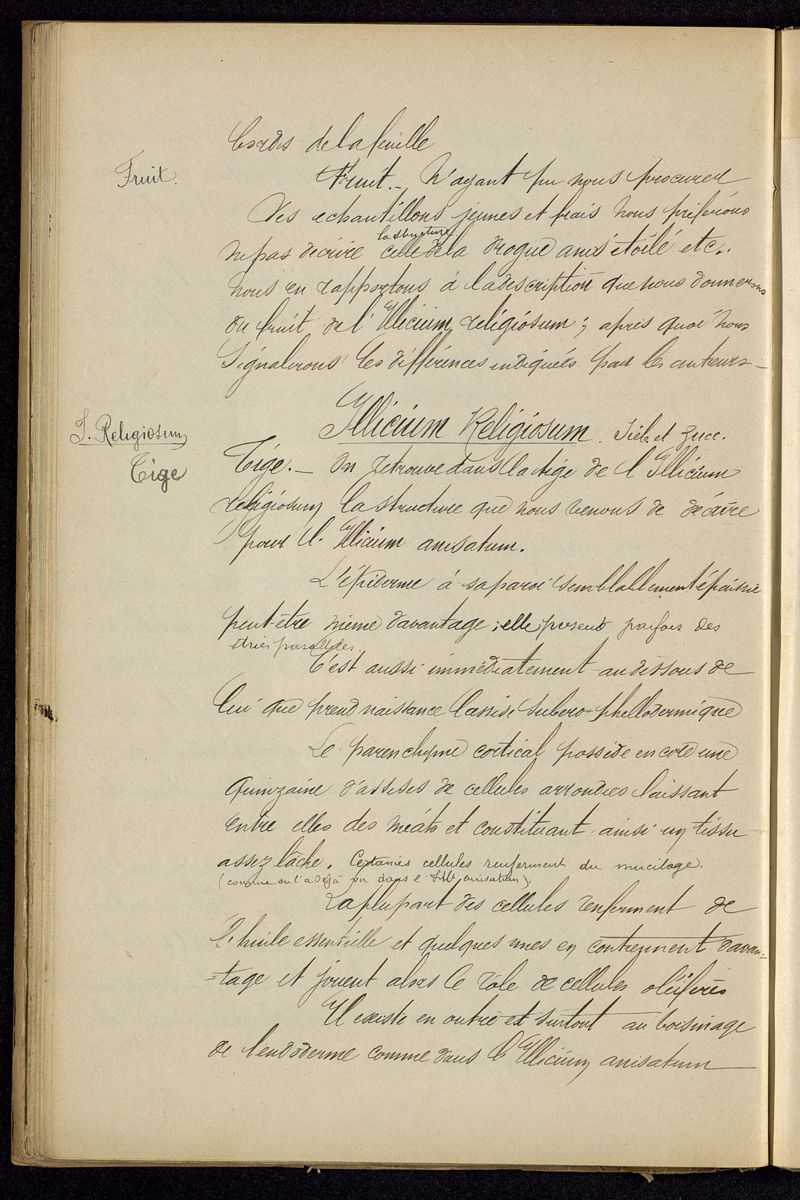 bords de la feuille
Fruit.
Fruit._ N'ayant pu nous procurer
des echantillons jeunes et frais nous préférons
ne pas décrire celle de la drogue anis étoilé etc..
la structure
nous en rapportons à la description que nous donnerons
du fruit de l'Illicium religiosum; après quoi nous
signalerons les différences indiqués par les auteurs_
I. Religiosum
Illicium Religiosum. Sieb et Zucc.
Tige
Tige._ On retrouve dans la tige de l'Illicium
religiosum la structure que nous venons de décrire
pour l'Illicium anisatum.
L'épiderme à sa paroi semblablement épaissie
peut-être même davantage; elle présente parfois des
stries parallèles.
C'est aussi immédiatement au dessous de
lui que prend naissance l'assise subero-phellodermique
Le parenchyme cortical possède encore une
quinzaine d'assises de cellules arrondies laissant
entre elles des méats et constituant ainsi un tissu
assez lâche. Certaines cellules renferment du mucilage.
(comme on l'a déjà vu dans l'Ill. anisatum).
La plupart des cellules renferment de
l'huile essentielle et quelques unes en contiennent davan-
-tage et jouent alors le rôle de cellules oléifères
Il existe en outre et surtout au voisinage
de l'endoderme comme dans l'Illicium anisatum